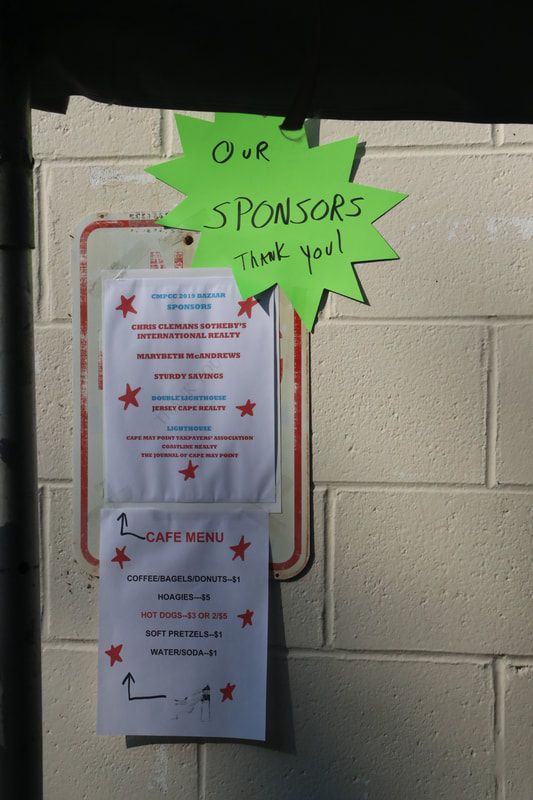 OUR
SPONSORS
THANK YOU!
CMPCC 2019 BAZAAR
SPONSORS
CHRIS CLEMANS SOTHEBY'S
INTERNATIONAL REALTY
MARYBETH McANDREWS
STURDY SAVINGS
DOUBLE LIGHTHOUSE
JERSEY CAPE REALTY
LIGHTHOUSE
CAPE MAY POINT TAXPAYERS' ASSOCIATION
COASTLINE REALTY
THE JOURNAL OF CAPE MAY POINT
CAFE MENU
COFFEE/BAGELS/DONUTS--$1
HOAGIES---$5
HOT DOGS--$3 OR 2/$5
SOFT PRETZELS--$1
WATER/SODA--$1